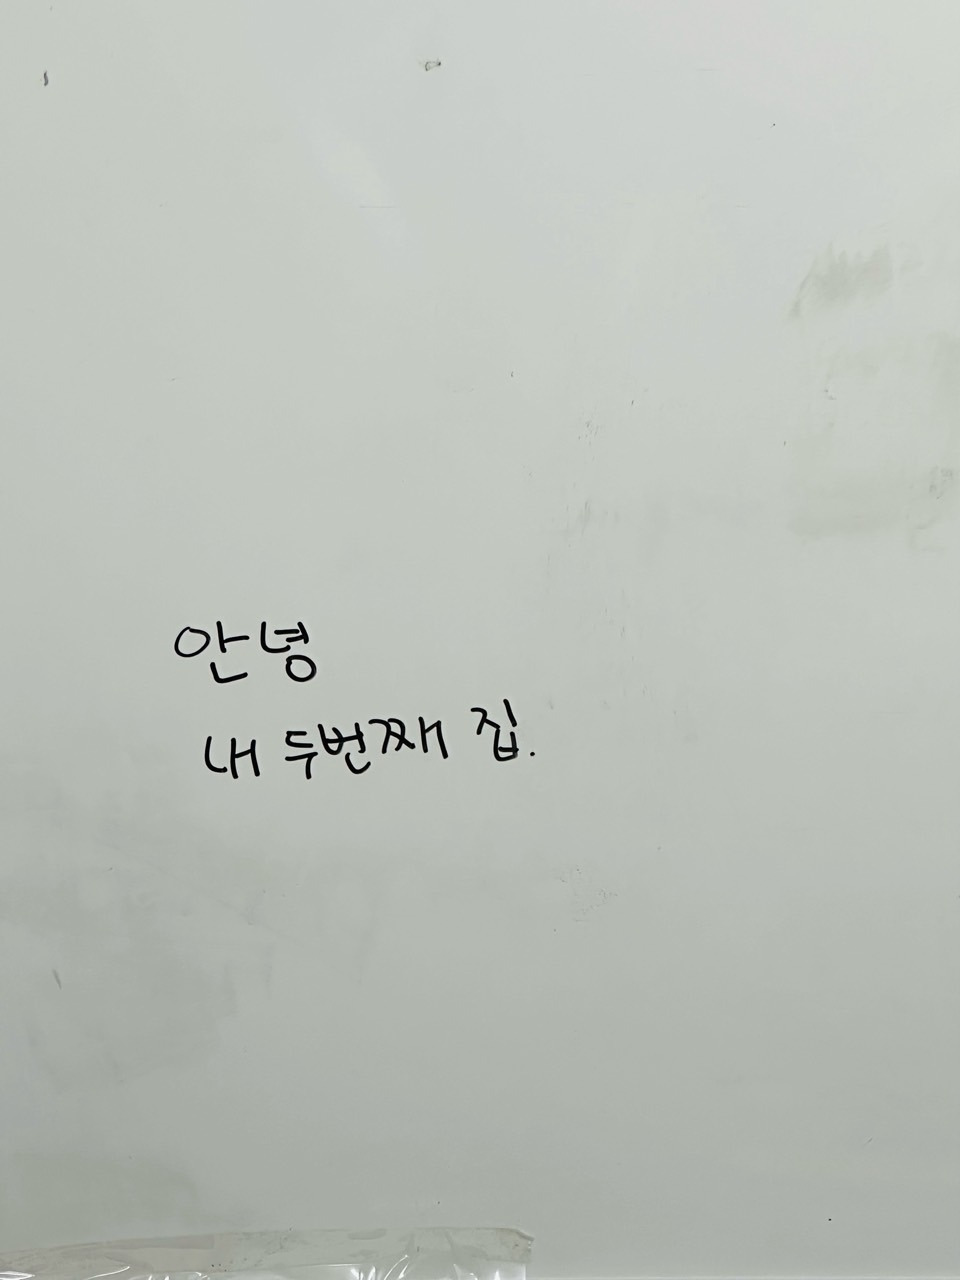 안녕
내 두번째 집.